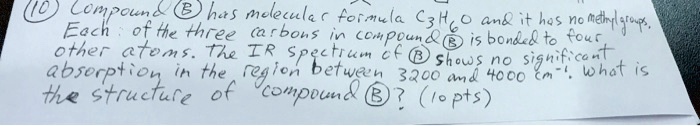 (10) Compound Ⓑ has molecular formula C3H6O and it has no methyl groups.
Each of the three carbons in compound Ⓑ is bonded to four
other atoms. The IR spectrum of Ⓑ shows no significant
absorption in the region between 3200 and 4000 cm⁻¹. What is
the structure of compound Ⓑ? (10 pts)